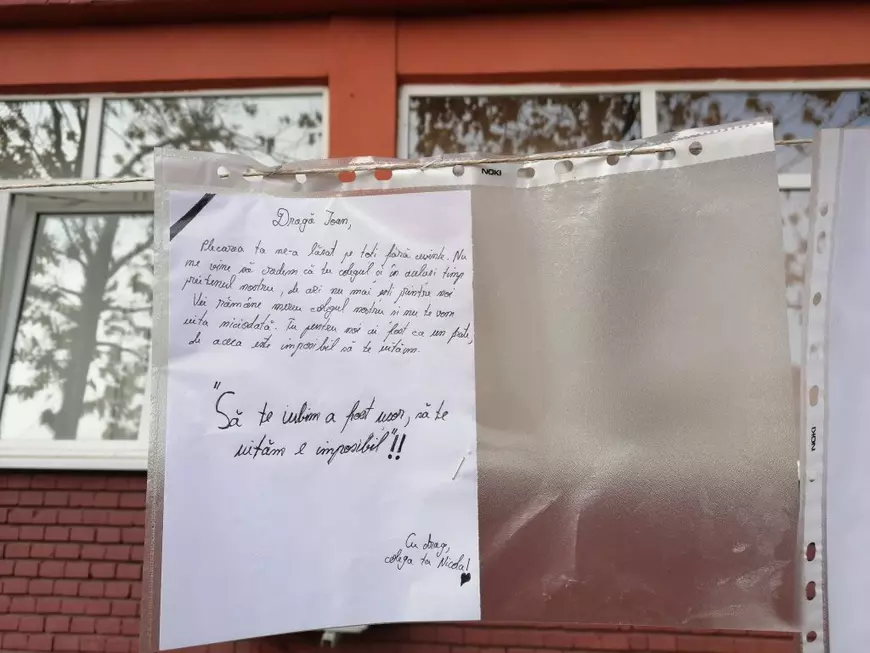 NOKI
Dragă Ioan,
Plecarea ta ne-a lăsat pe toti fără cuvinte. Nu
ne vine să credem că tu colegul și în acelasi timp
prietenul nostru, de azi nu mai esti printre noi
Vei rămâne mereu colegul nostru si nu te vom
uita niciodată. Tu pentru noi ai fost ca un frate,
de aceea este imposibil să te uităm.
"Să te iubim a fost usor, să te
uităm e imposibil"!!
Cu drag,
colega ta Nicola!
NOKI